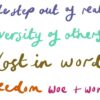 step out of real
versity of others
Lost in word
eedom woe + wor